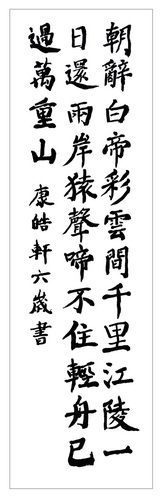 朝辭白帝彩雲間千里江陵一
日還兩岸猿聲啼不住輕舟已
過萬重山 康皓軒六歲書